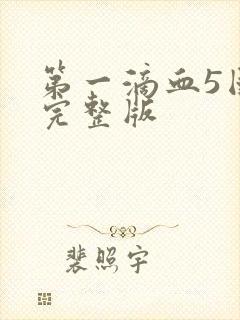 第一滴血5国
完整版
裴照宇